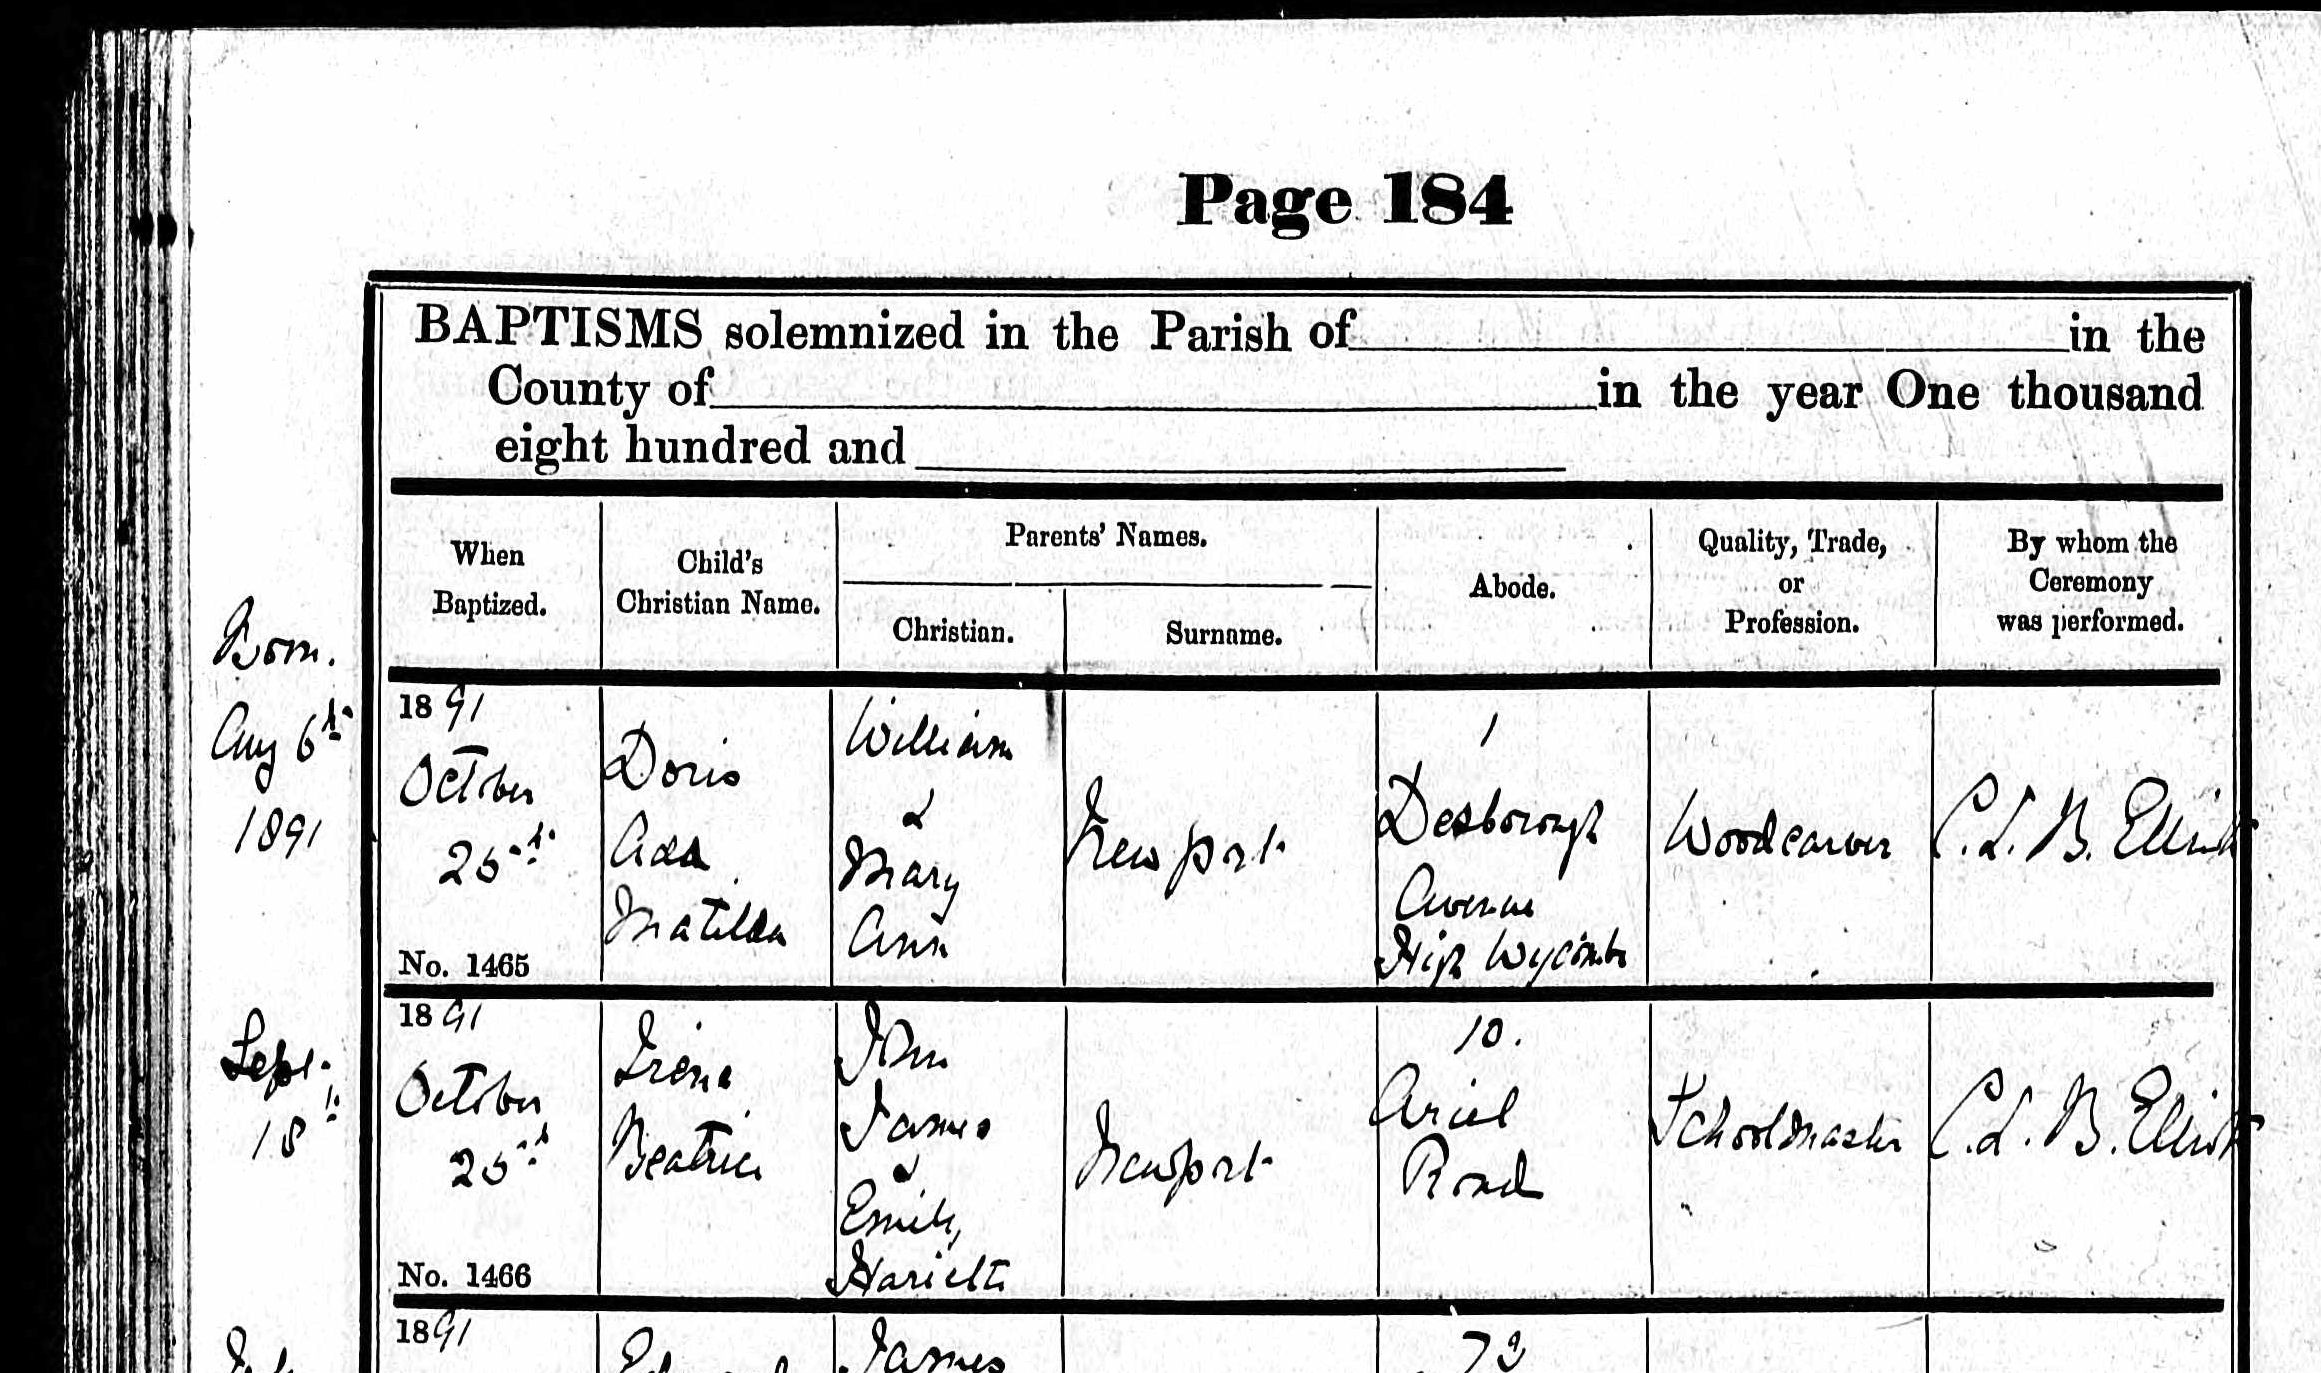 Page 184
BAPTISMS solemnized in the Parish of in the
County of in the year One thousand
eight hundred and
When
Baptized.
Child's
Christian Name.
Parents' Names.
Christian.
Surname.
Abode.
Quality, Trade,
or
Profession.
By whom the
Ceremony
was performed.
Born.
Aug 6th
1891
1891
October
25th
No. 1465
Doris
Ada
Matilda
William
&
Mary
Ann
Newport
1
Desborough
Avenue
High Wycombe
Woodcarver
C. L. B. Elliott
Sept.
18th
1891
October
25th
No. 1466
Irene
Beatrice
John
James
&
Emily
Hariette
Newport
10.
Ariel
Road
Schoolmaster
C. L. B. Elliott
1891
James